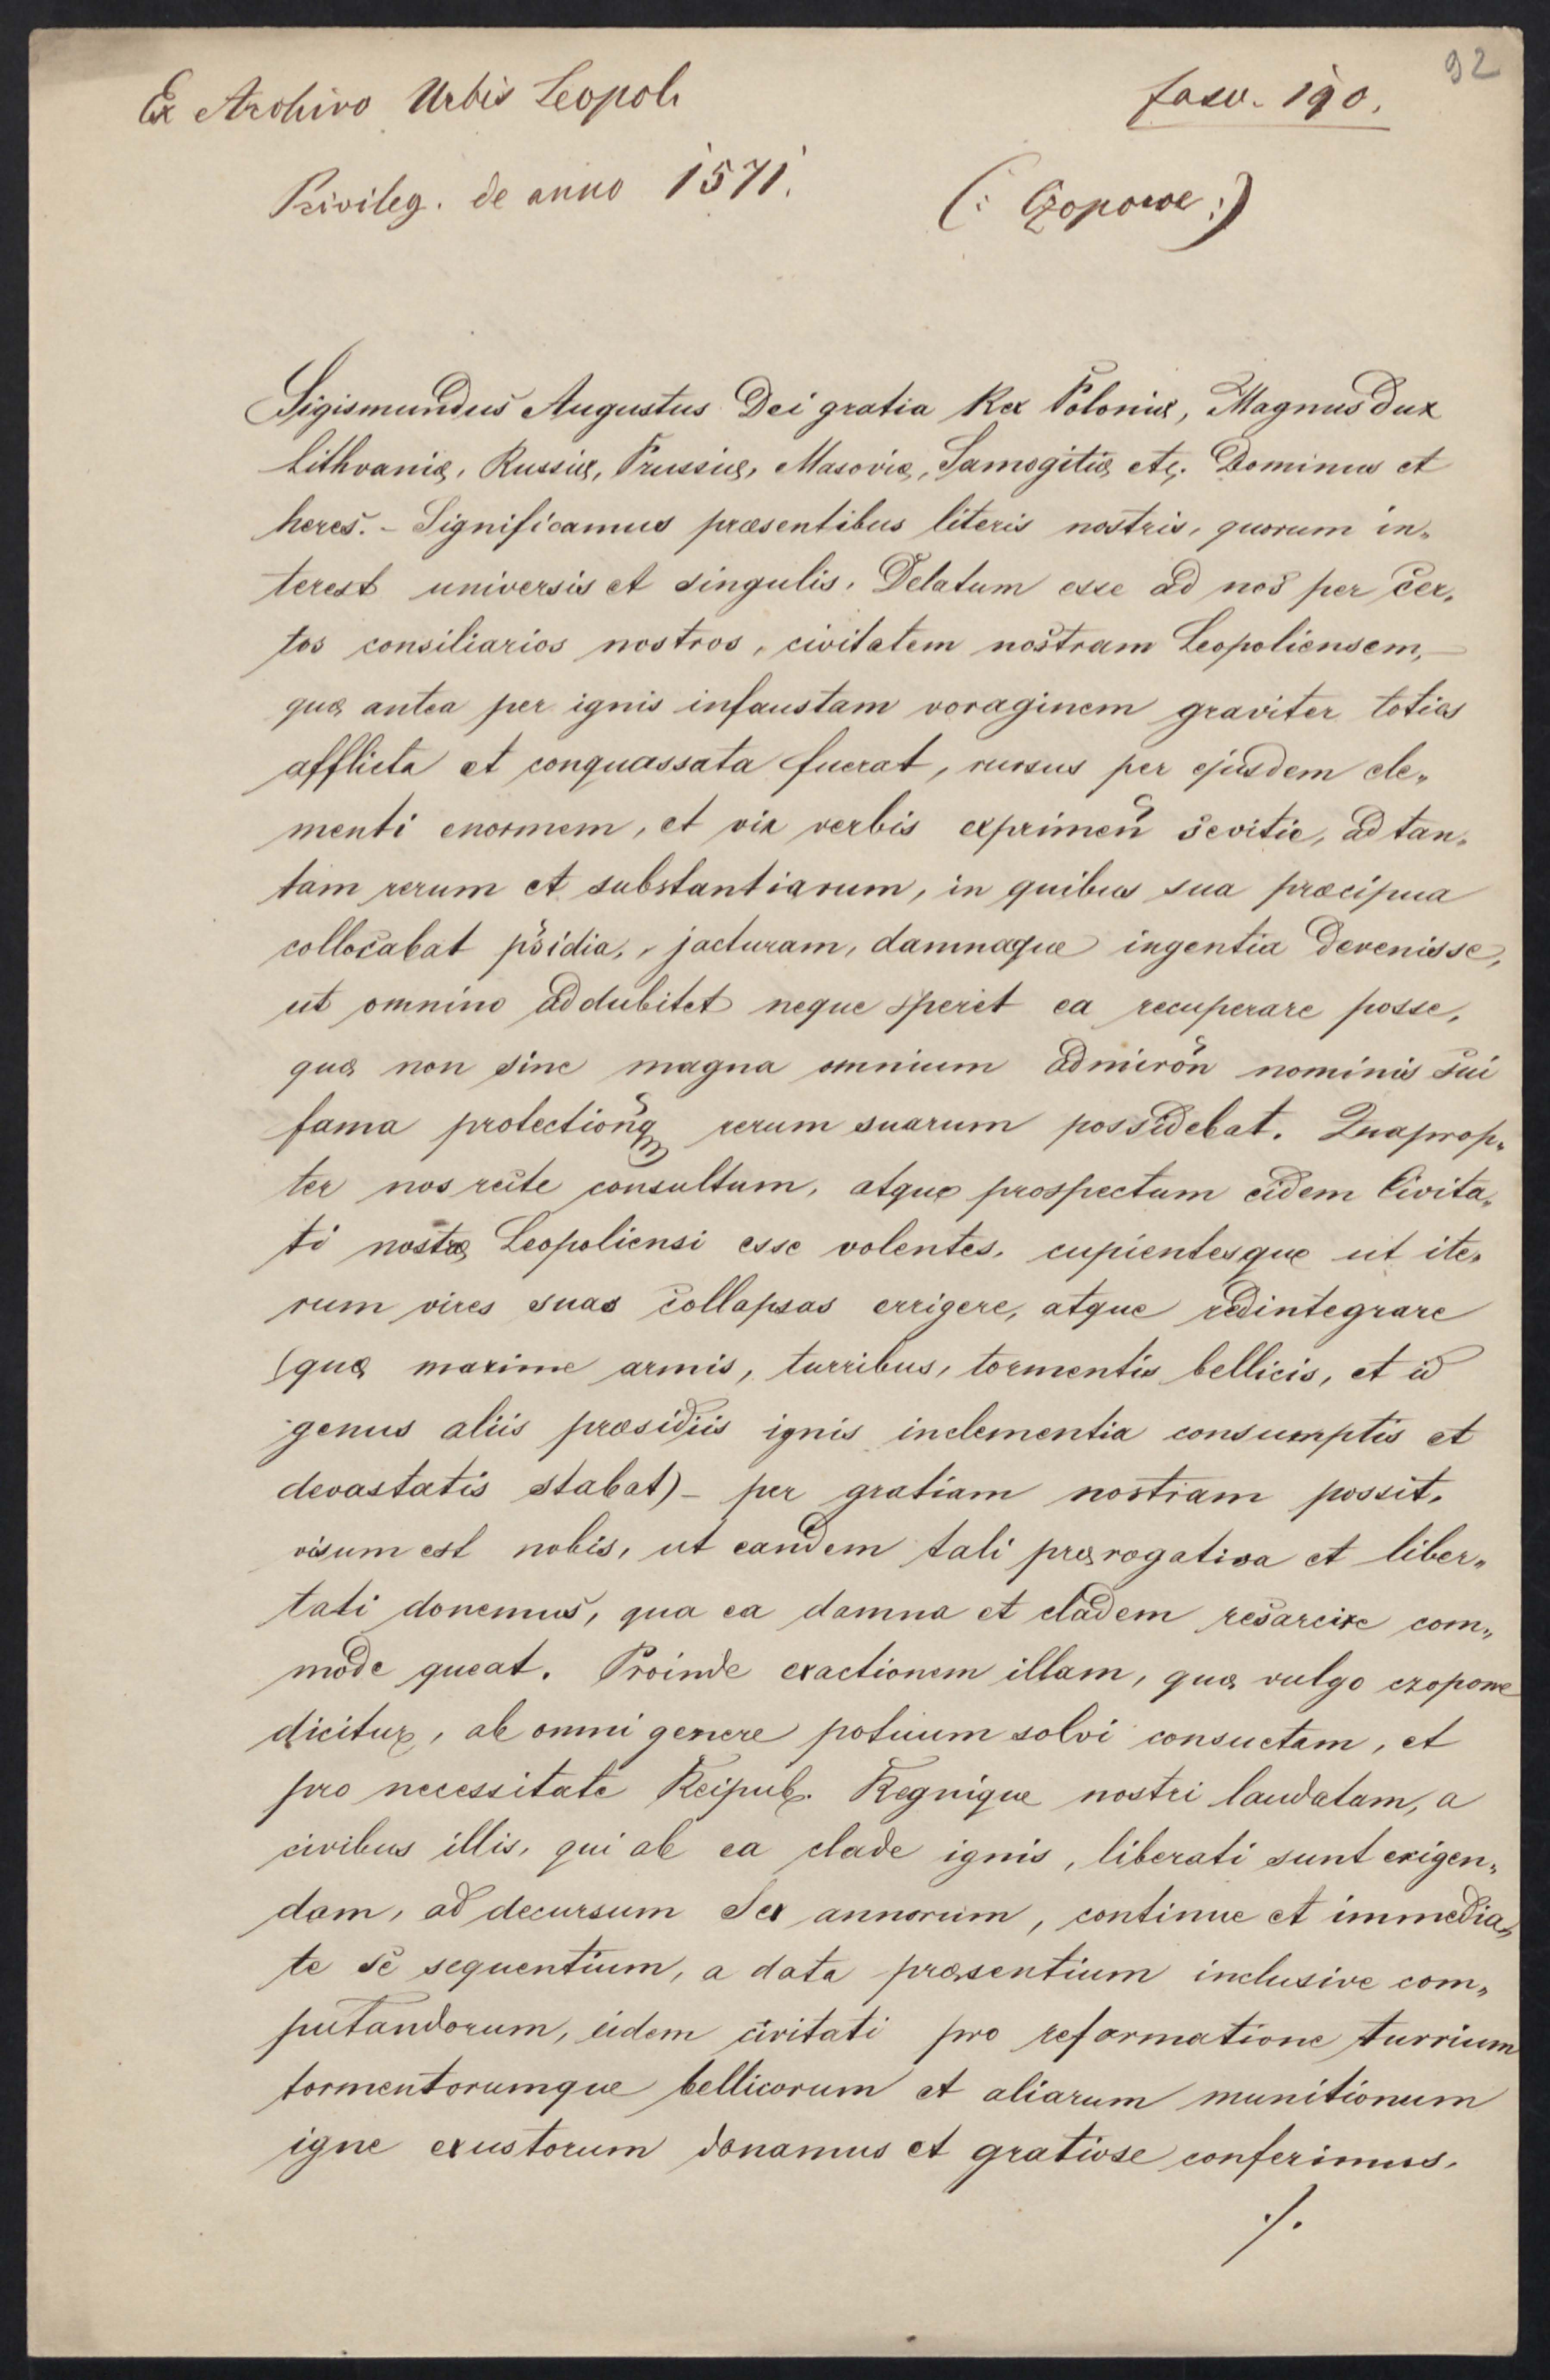 92
Ex Archivo Urbis Leopoli fasc. 190.
Privileg. de anno 1571. (: Czopowe :)
Sigismundus Augustus Dei gratia Rex Poloniæ, Magnus Dux
Lithvanię, Russiæ, Prussię, Masovię, Samogitię etc. Dominus et
heres. - Significamus præsentibus literis nostris, quorum in„
terest universis et singulis. Delatum esse ad nos per cer„
tos consiliarios nostros, civitatem nostram Leopoliensem,
quę antea per ignis infaustam voraginem graviter toties
afflicta et conquassata fuerat, rursus per ejusdem ele„
menti enormem, et vix verbis exprimen sevitie, ad tan„
tam rerum et substantiarum, in quibus sua præcipua
collocabat psidia, jacturam, damnaque ingentia devenisse,
ut omnino addubitet neque speret ea recuperare posse,
quę non sine magna omnium admiron nominis sui
fama protectionq rerum suarum possidebat. Quaprop„
ter nos recte consultum, atque prospectum eidem Civita„
ti nostrę Leopoliensi esse volentes, cupientesque ut ite„
rum vires suas collapsas errigere, atque redintegrare
(quę maxime armis, turribus, tormentis bellicis, et id
genus aliis præsidiis ignis inclementia consumptis et
devastatis stabat) - per gratiam nostram possit.
visum est nobis, ut eandem tali pręrogativa et liber„
tati donemus, qua ea damna et cladem resarcire com„
mode queat. Proinde exactionem illam, quę vulgo czopowe
dicitur, ab omni genere potuum solvi consuetam, et
pro necessitate Reipub. Regnique nostri laudatam, a
civibus illis, qui ab ea clade ignis, liberati sunt exigen„
dam, ad decursum Sex annorum, continue et immedia„
te se sequentium, a data præsentium inclusive com„
putandorum, eidem civitati pro reformatione turrium
tormentorumque bellicorum et aliarum munitionum
igne exustorum donamus et gratiose conferimus.
./.